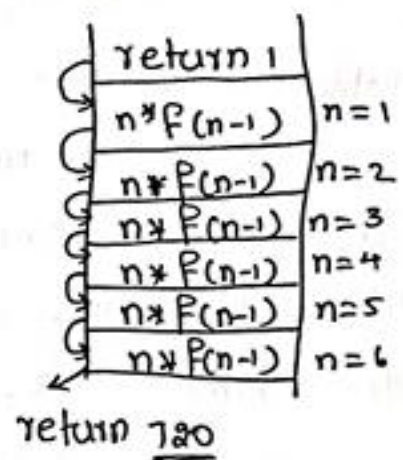 return 1
n*f(n-1) n=1
n* f(n-1) n=2
n* f(n-1) n=3
n* f(n-1) n=4
n* f(n-1) n=5
n* f(n-1) n=6
return 720